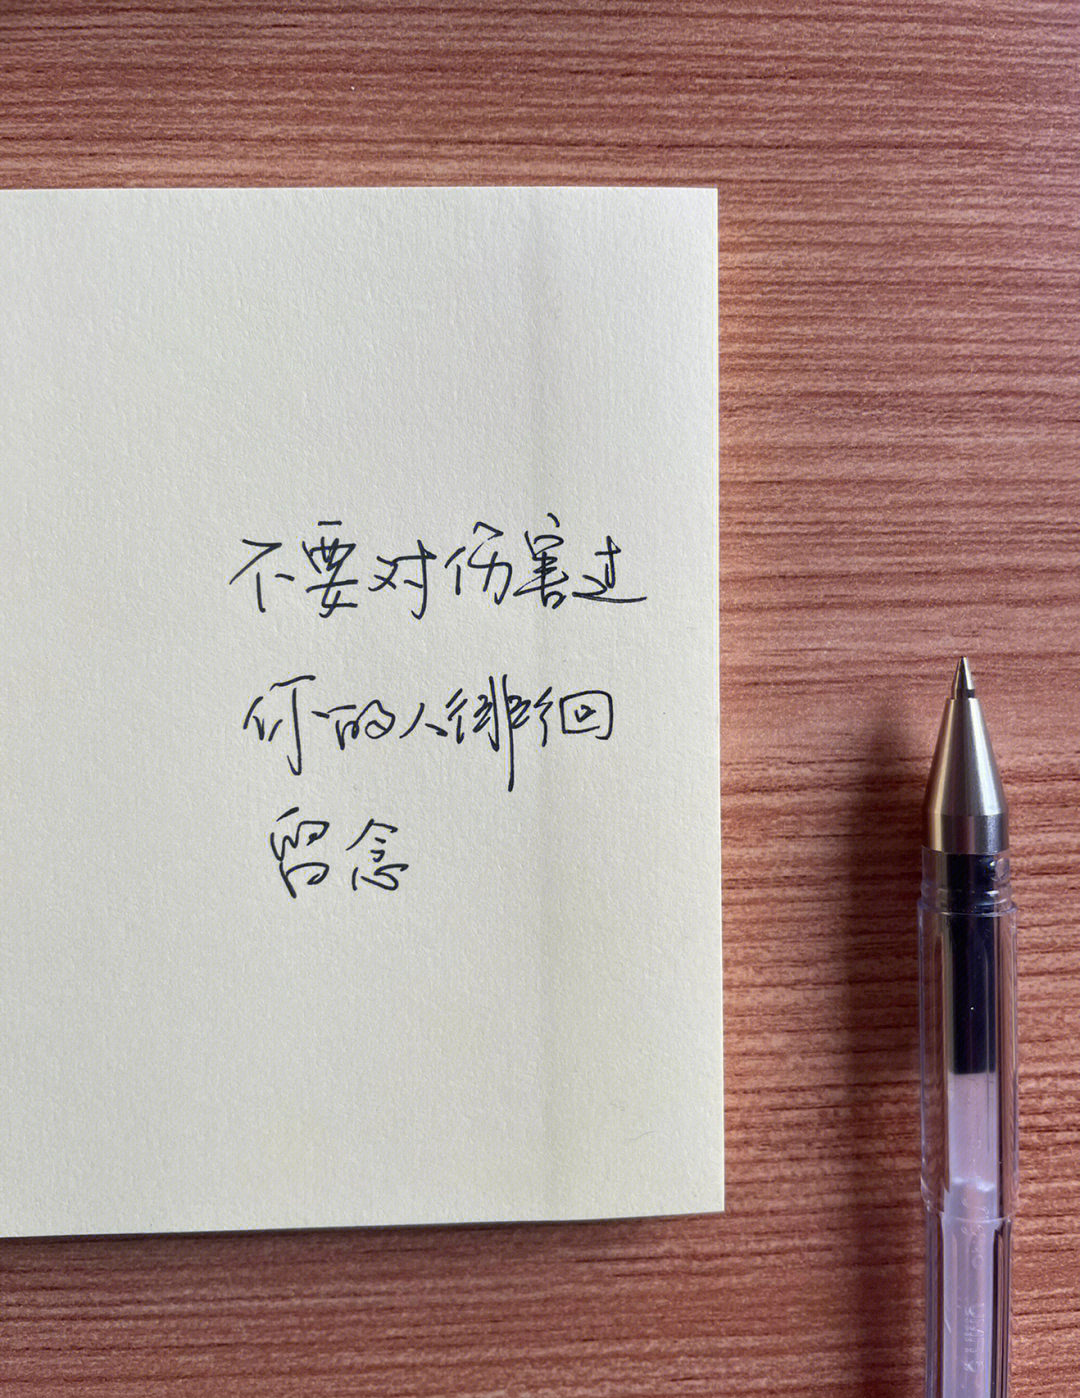 不要对伤害过
你的人徘徊
留念